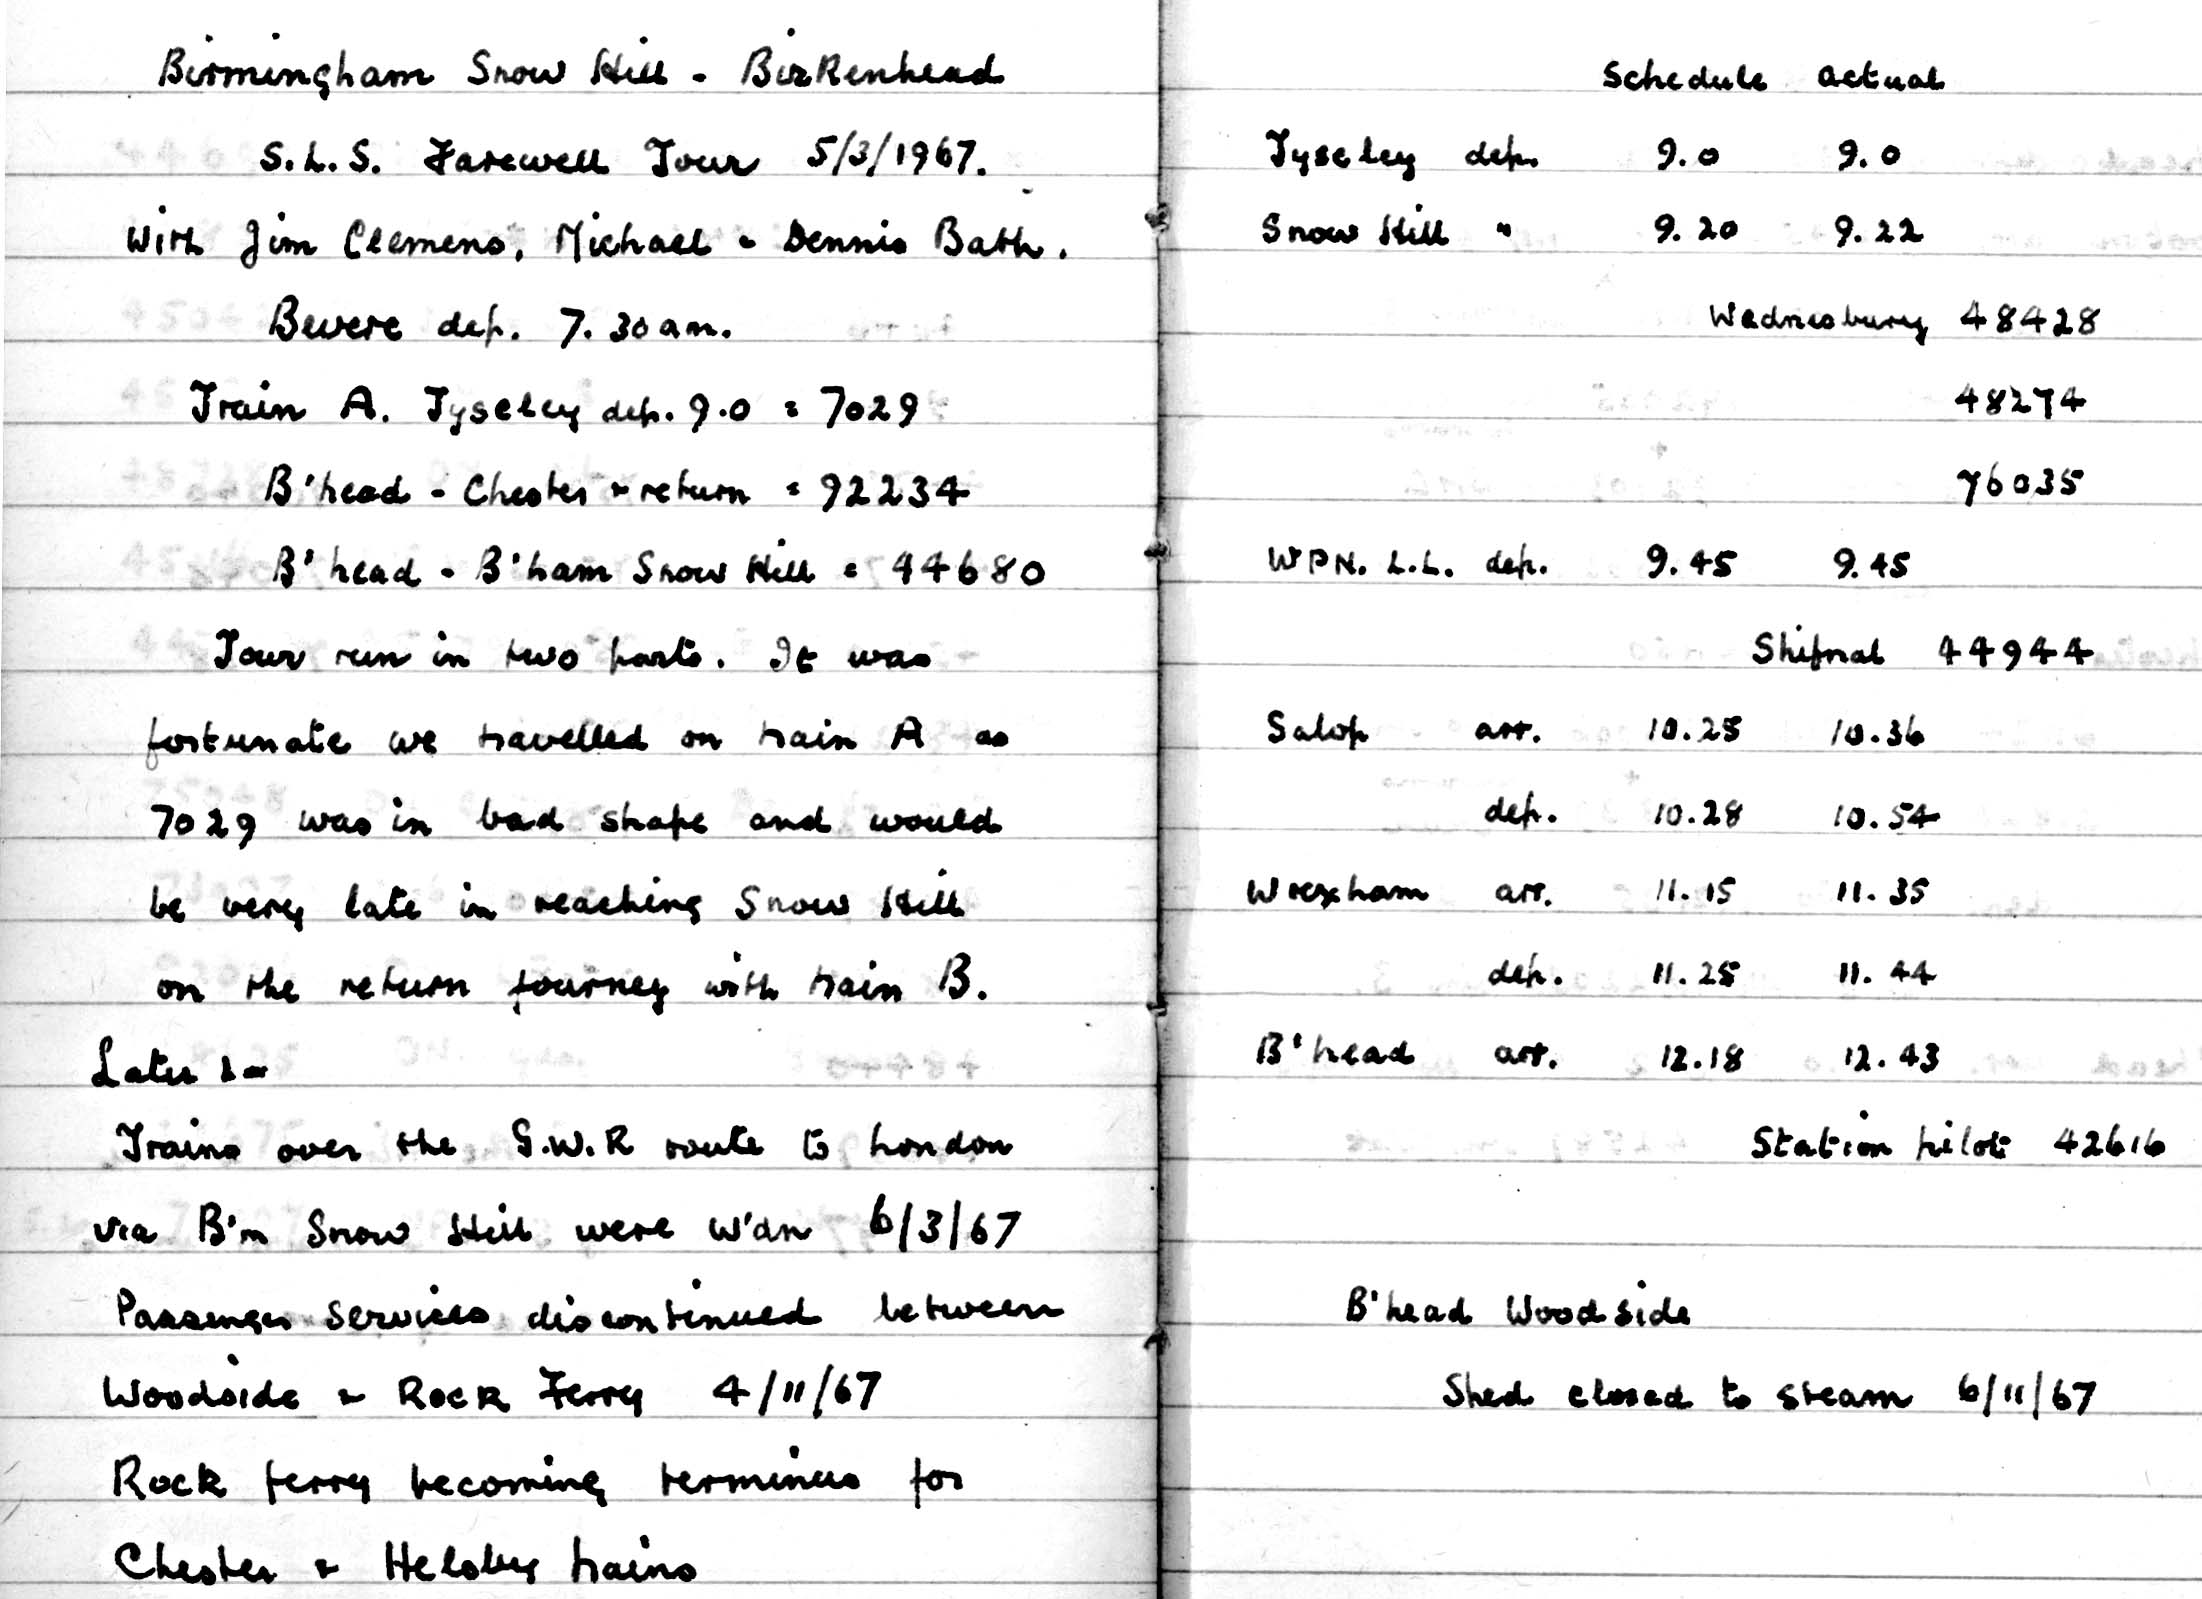 Birmingham Snow Hill - Birkenhead
S.L.S. Farewell Tour 5/3/1967.
With Jim Clemens, Michael & Dennis Bath.
Bevere dep. 7.30am.
Train A. Tyseley dep. 9.0 = 7029
B'head - Chester & return = 92234
B'head - B'ham Snow Hill = 44680
Tour run in two parts. It was
fortunate we travelled on train A as
7029 was in bad shape and would
be very late in reaching Snow Hill
on the return journey with train B.
Later :-
Trains over the G.W.R route to London
via B'm Snow Hill were W'dn 6/3/67
Passenger Services discontinued between
Woodside & Rock Ferry 4/11/67
Rock ferry becoming terminus for
Chester & Helsby trains
Schedule actual
Tyseley dep. 9.0 9.0
Snow Hill " 9.20 9.22
Wednesbury 48428
48274
76035
WPN. L.L. dep. 9.45 9.45
Shifnal 44944
Salop arr. 10.25 10.36
dep. 10.28 10.54
Wrexham arr. 11.15 11.35
dep. 11.25 11.44
B'head arr. 12.18 12.43
Station pilot 42616
B'head Woodside
Shed closed to steam 6/11/67